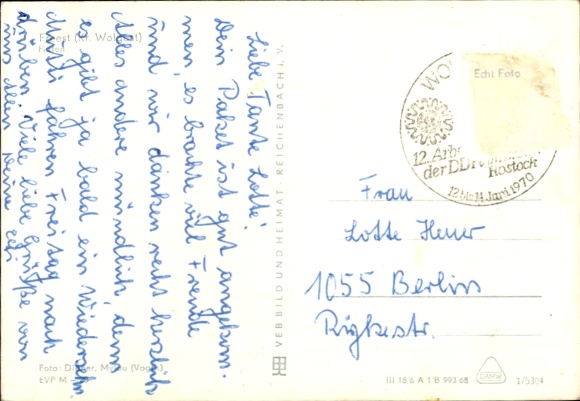 Freest (Kr. Wolgast)
Hafen
Liebe Tante Lotte!
Dein Paket ist gut angekom-
men, es brachte viel Freude
und wir danken recht herzlich
Alles andere mündlich, denn
es gibt ja bald ein Wiedersehn.
Mutti fahren Freitag nach
drüben. Viele liebe Grüße von
uns allen Deine
Foto: Mylau (Vogtl.)
EVP M
VEB BILD UND HEIMAT · REICHENBACH I. V.
Echt Foto
12. Arb
der DDR
Rostock
12. bis 14. Juni 1970
Frau
Lotte
1055 Berlin
Rykestr.
III 18/6 A 1 B 993 68
1/5304